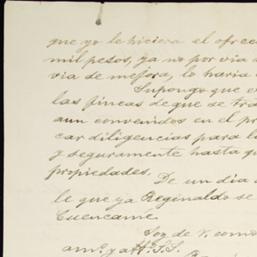 que yo le hiciera el ofrec
mil pesos, ya no por via d
via de mejora, lo haria
Supongo que e
las fincas de que se tra
aun convenidos en el pr
car diligencias para l
y seguramente hasta q
propiedades.
De un dia a
le que ya Reginaldo se
Cuencamé.
Soy de V. como
am.º y a H. S. S.